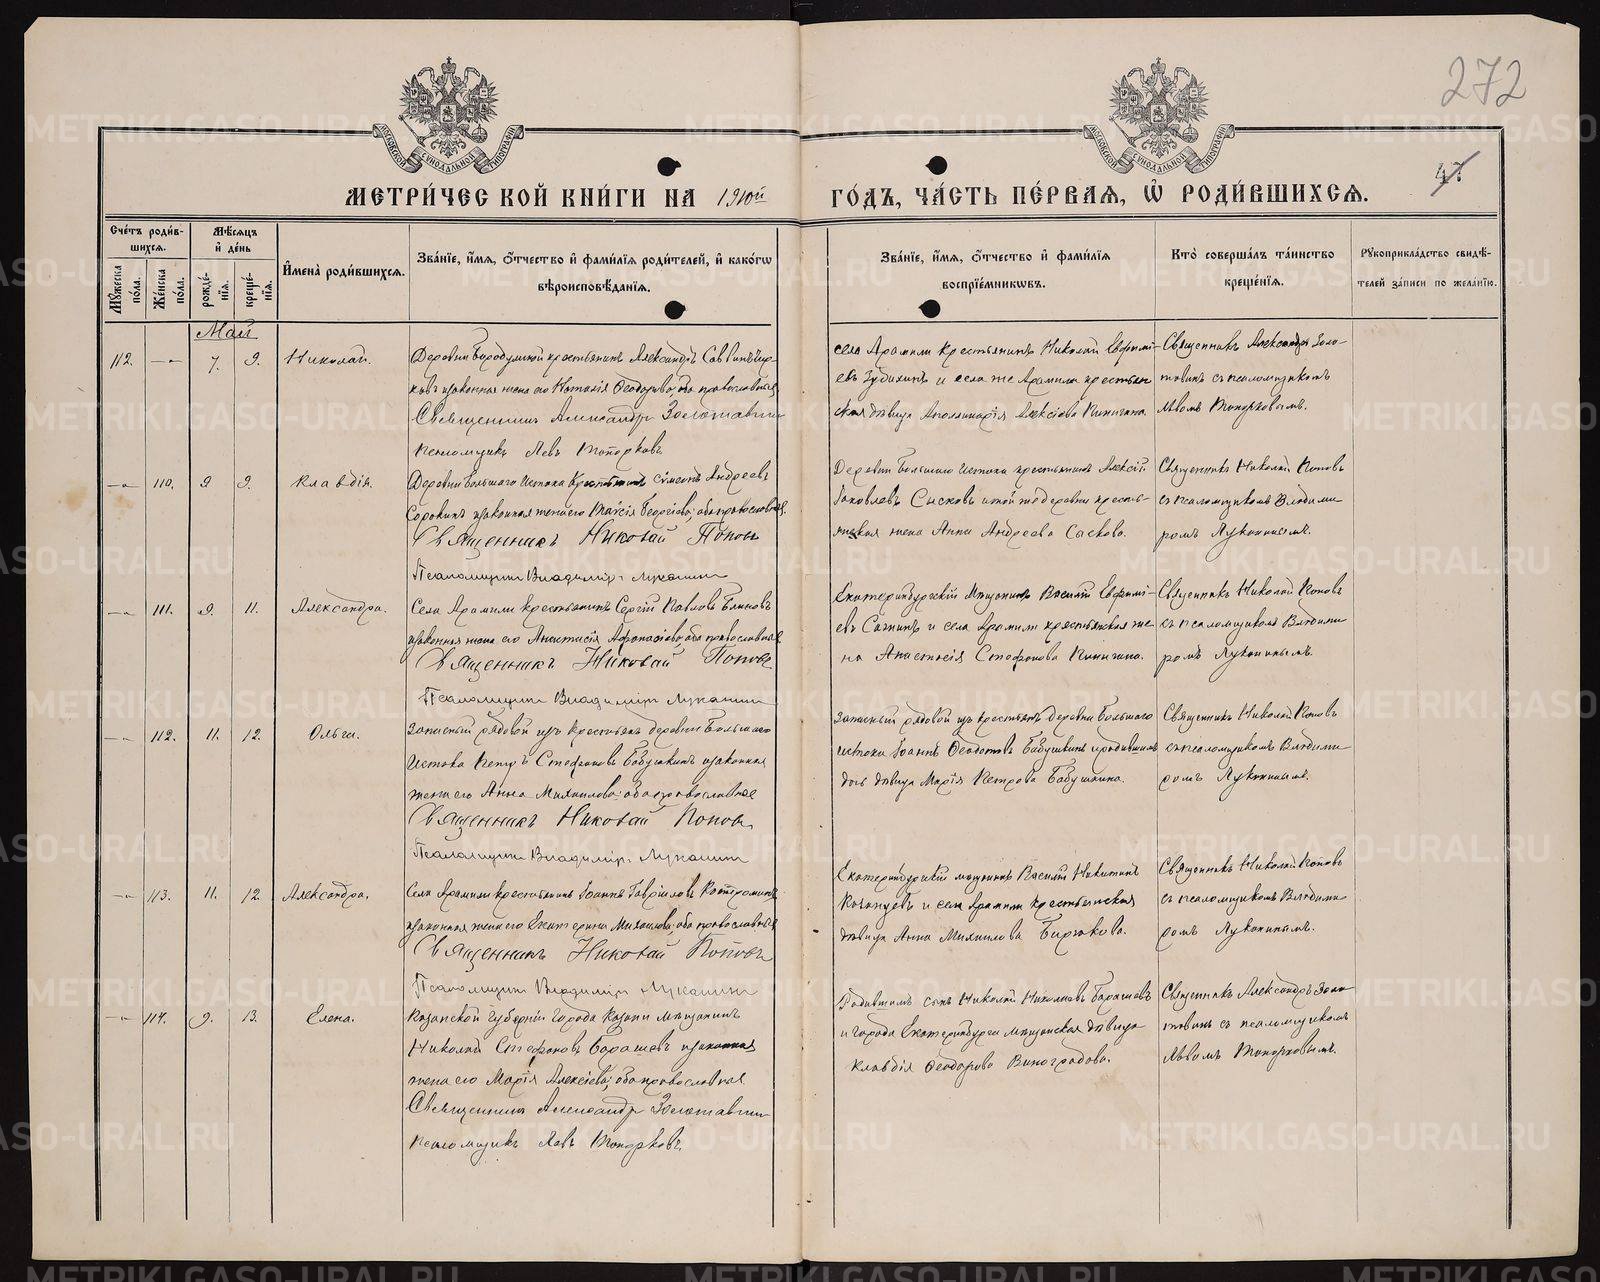 272
47
МОСКОВСКОЙ СѴНОДАЛЬНОЙ ТИПОГРАФІИ
МОСКОВСКОЙ СѴНОДАЛЬНОЙ ТИПОГРАФІИ
МЕТРИ́ЧЕСКОЙ КНИ́ГИ НА 1910й ГО́ДЪ, ЧА́СТЬ ПЕ́РВАѦ, Ѽ РОДИ́ВШИХСѦ.
Сче́тъ роди́в-
шихсѧ.
Мꙋ́жеска по́ла.
Же́нска по́ла.
Мѣ́сѧцъ
и҆ де́нь
рожде́-
нїѧ.
креще́-
нїѧ.
И҆мена̀ роди́вшихсѧ.
Зва́нїе, и҆́мѧ, ѻ҆́тчество и҆ фами́лїѧ роди́телей, и҆ како́гѡ
вѣроисповѣ́данїѧ.
Зва́нїе, и҆́мѧ, ѻ҆́тчество и҆ фами́лїѧ
воспрїе́мникѡвъ.
Кто̀ соверша́лъ та́инство
креще́нїѧ.
Рꙋкоприкла́дство свидѣ́-
телей за́писи по жела́нїю.
Май
112. —„— 7. 9. Николай.
Деревни Бородулиной крестьянинъ Александръ Саввинъ
законная жена его Наталія Ѳеодорова, оба православные
Священникъ Александръ Золотавинъ
Псаломщикъ Левъ Топорковъ
села Арамили крестьянинъ Николай Евфимі-
евъ Зудихинъ и села же Арамили крестьян
ская дѣвица Аполлинарія Алексіева Кипигина.
Священникъ Александръ Золо-
тавинъ съ псаломщикомъ
Львомъ Топорковымъ.
—„— 110. 9 9. Клавдія.
Деревни Большаго Истока Крестьянинъ Сѵмеонъ Андреевъ
Сорокинъ законная жена его Таисія Георгіева; оба православные.
Священникъ Николай Поповъ
Псаломщикъ Владиміръ Луканинъ
Деревни Большаго Истока крестьянинъ Алексій
Іаковлевъ Сысковъ и той же деревни кресть-
янская жена Анна Андреева Сыскова.
Священникъ Николай Поповъ
съ псаломщикомъ Владими
ромъ Луканинымъ.
—„— 111. 9. 11. Александра.
Села Арамили крестьянинъ Сергій Павловъ Блиновъ
законная жена его Анастасія Аѳанасіева, оба православные
Священникъ Николай Поповъ
Псаломщикъ Владиміръ Луканинъ
Екатеринбургскій Мѣщанинъ Василій Евфимі-
евъ Сагнинъ и села Арамили крестьянская же
на Анастасія Стефанова Кипигина.
Священникъ Николай Поповъ
съ псаломщикомъ Владими
ромъ Луканинымъ.
—„— 112. 11. 12. Ольга.
Запасный рядовой изъ крестьянъ деревни Большаго
Истока Петръ Стефановъ Бабушкинъ законная
жена его Анна Михаилова: оба православные
Священникъ Николай Поповъ
Псаломщикъ Владиміръ Луканинъ
Запасный рядовой изъ крестьянъ деревни Большаго
истока Іоаннъ Ѳеодотовъ Бабушкинъ и родившихъ
дочь дѣвица Марія Петрова Бабушкина.
Священникъ Николай Поповъ
съ псаломщикомъ Владими
ромъ Луканинымъ.
—„— 113. 11. 12. Александра.
Села Арамили крестьянинъ Іоаннъ Гавріиловъ Костроминъ
законная жена его Екатерина Михаилова, оба православные
Священникъ Николай Поповъ
Псаломщикъ Владиміръ Луканинъ
Екатеринбургскій мѣщанинъ Василій Никитинъ
Казанцевъ и села Арамили крестьянская
дѣвица Анна Михаилова Бирюкова.
Священникъ Николай Поповъ
съ псаломщикомъ Владими
ромъ Луканинымъ.
—„— 114. 9. 13. Елена.
Казанской Губерніи Города Казани мѣщанинъ
Николай Стефановъ Барашевъ законная
жена его Марія Алексіева; оба православные
Священникъ Александръ Золотавинъ
Псаломщикъ Левъ Топорковъ.
Родившимъ сынъ Николай Николаевъ Барашевъ
и Города Екатеринбурга мѣщанская дѣвица
Клавдія Ѳеодорова Виноградова.
Священникъ Александръ Золо-
тавинъ съ псаломщикомъ
Львомъ Топорковымъ.
METRIKI.GASO-URAL.RU